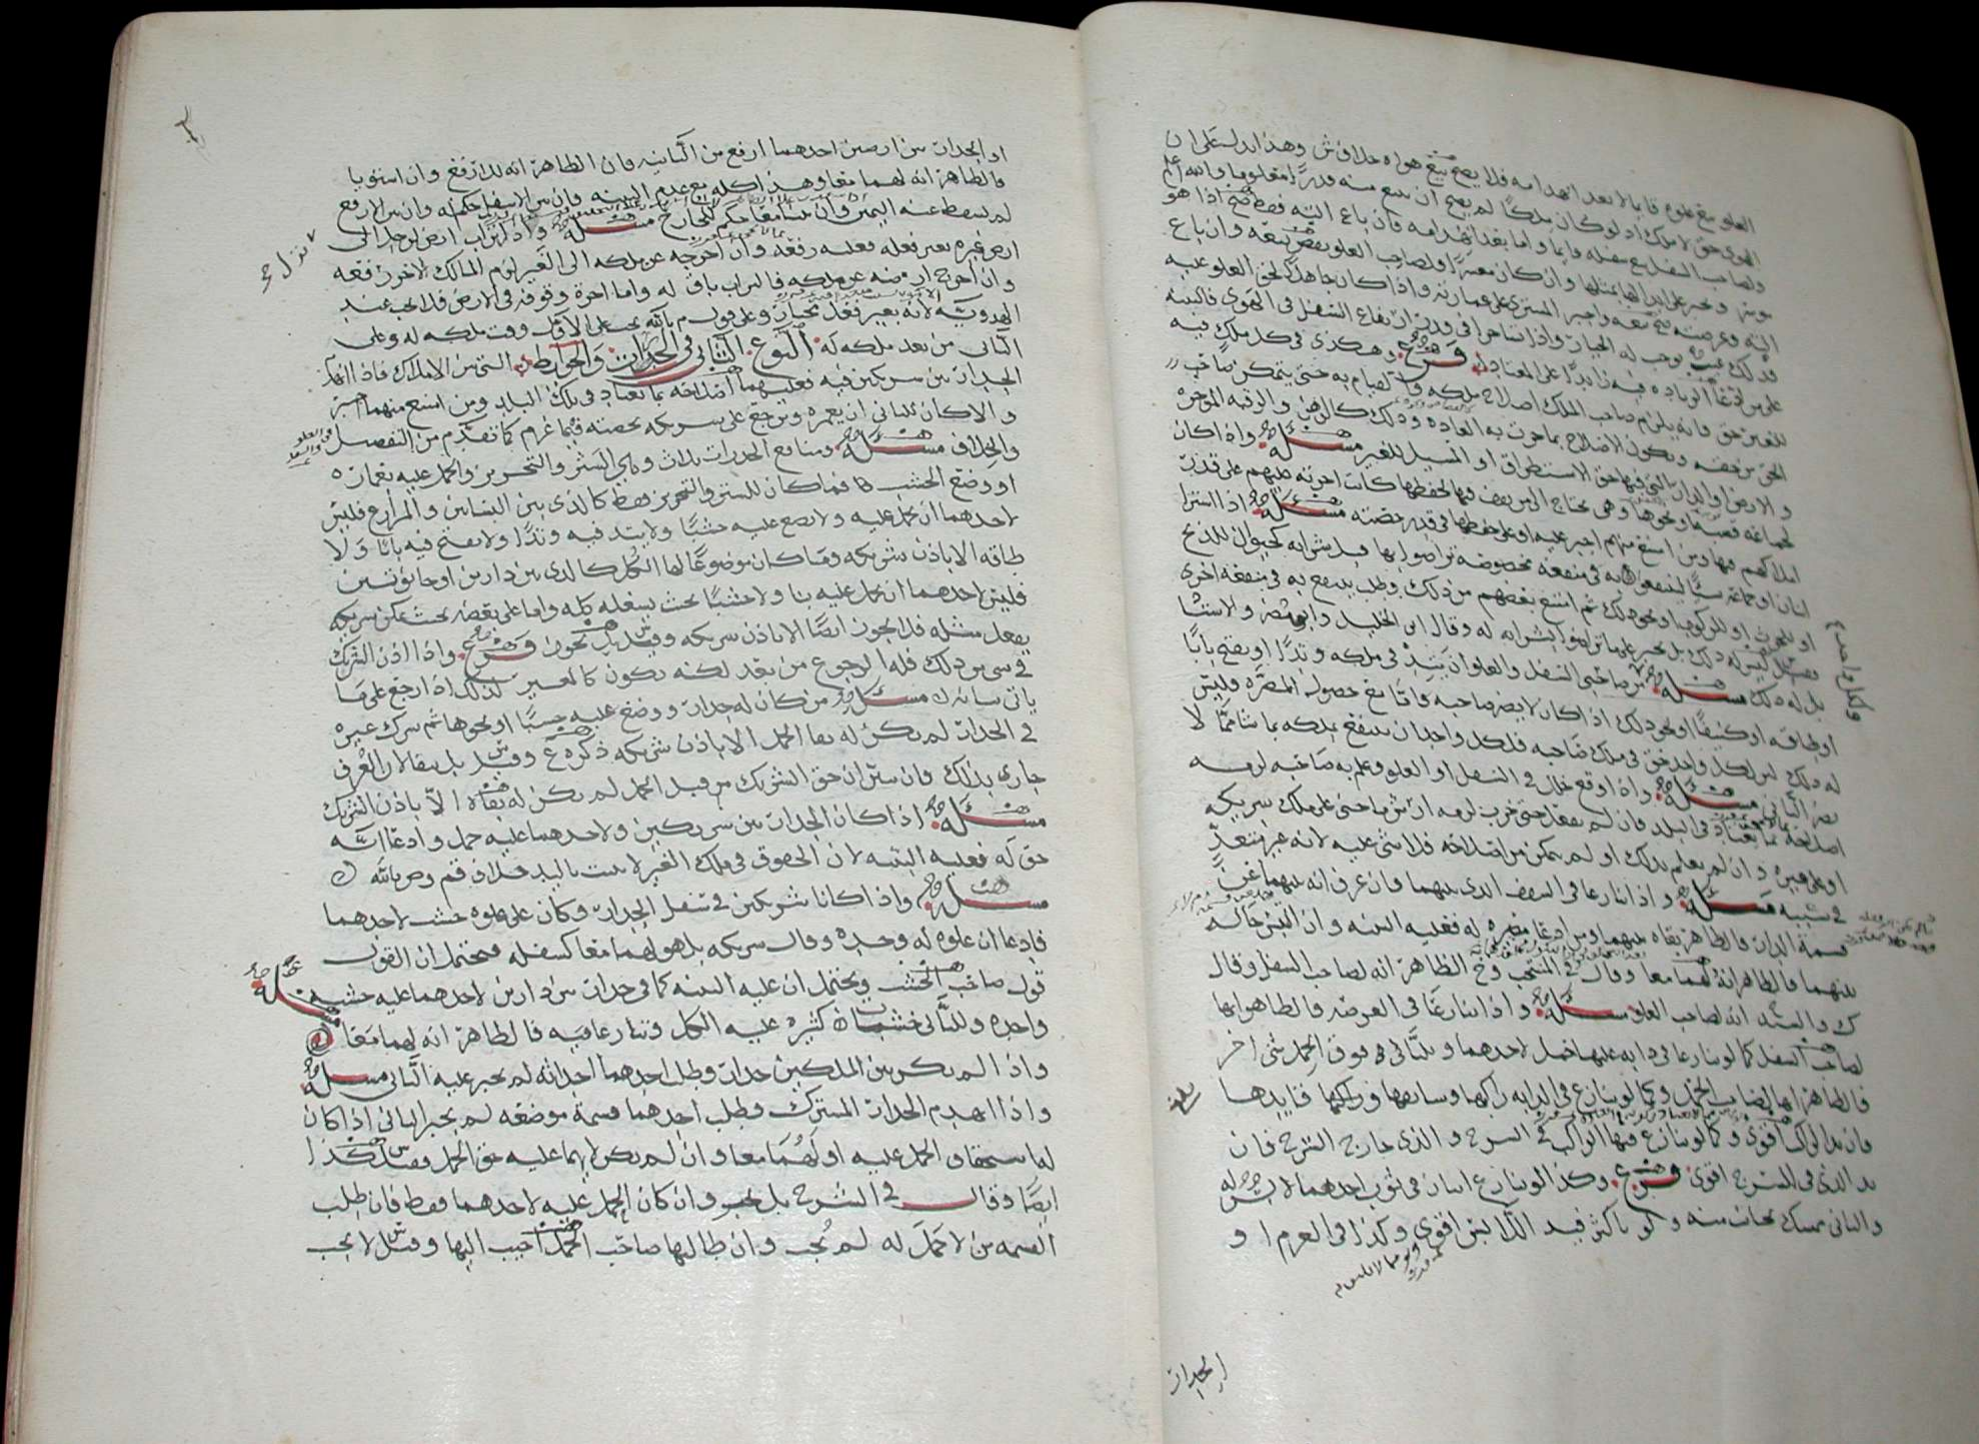 العلو بيع علوه قايما لا بعد انهدامه فلا يصح بيع هواه خلاف ش وهذا يدل على ان
الهوى حق لا ملك اذ لو كان ملكًا لم يصح ان يبيع منه قدرًا معلوما والله اعلم
ولصاحب السفل بيع سفله قايما واما بعد انهدامه فان باع البقعة فقط صح اذا هو
موسر ويجبر على ابدالها بمثلها وان كان معسرًا فلصاحب العلو نقض بيعه وان باع
البقعة وعرصته صح بيعه واجبر المشتري على عمارته واذا كان جاهلا لحق العلو عليه
فذلك عيب يوجب له الخيار واذا تشاجرا في قدر ارتفاع السفل في الهوى فالبينة
على من ادعا الزيادة فيه زايدًا على المعتاد فرع وهكذى في كل ملك فيه
للغير حق فانه يلزم صاحب الملك اصلاح ملكه والقيام به حتى يتمكن صاحب
الحق من حقه ويكون الاصلاح بما جرت به العادة وذلك كالرهن والرقبة الموجرة
والارض والدار التي فيها حق الاستطراق او المسيل للغير مسئلة واذا كان
لجماعة قصبة ونحوها وهي تحتاج الى من يقف فيها لحفظها كانت اجرته عليهم على قدر
املاكهم فيها ومن امتنع منهم اجبر عليه او على حفظها في قدر حصته مسئلة اذا اشترا
اثنان او جماعة شيًا لينتفعوا به في منفعة مخصوصة تواضوا بها قبل شرايه كحيوان للذبح
او للحرث او للركوب او نحو ذلك ثم امتنع بعضهم من ذلك وطلب ينتفع به في منفعة اخرى
فليس له ذلك بل يجبر على ما تراضوا الشرا به له وقال ابن الخليل وابو مضر والاستثنا
بل له ذلك مسئلة من صاحبي السفل والعلو ان يتد في ملكه وتدًا او يفتح بابًا
او طاقة او كنيفًا او نحو ذلك اذا كان لا يضر صاحبه واما مع حصول المضرة فليس
له ذلك لان لكل واحد حق في ملك صاحبه فلكل واحد ان ينتفع بملكه بما شا مما لا
يضر الثاني مسئلة واذا وقع خلل في السفل او العلو وعلم به صاحبه لزمه
اصلاحه بما يعتاد في البلد فان لم يفعل حتى خرب لزمه ارش ما جنى على ملك شريكه
او على غيره وان لم يعلم بذلك او لم يتمكن من اصلاحه فلا شي عليه لانه غير متعدٍّ
في سببه مسئلة واذا تنازعا في السقف الذي بينهما وان عرف انه بينهما عن
قسمة الدار فالظاهر بقاه بينهما ومن ادعا مصيره له فعليه البينة وان التبس حاله
بينهما فالظاهر انه لهما معا وقال في المنتخب وح الظاهر انه لصاحب السفل وقال
ك والسيد انه لصاحب العلو مسئلة واذا تنازعا في العرصة فالظاهر انها
لصاحب السفل كما لو تنازعا في دابة عليها حمل لاحدهما وللثاني فوق الحمل شي اخر
فالظاهر انها لصاحب الحمل وكما لو تنازع في الدابة راكبها وسايقها وراكبها وقايدها
فان يد الراكب اقوى وكما لو تنازع فيها الراكب في السرج والذي خارج السرج فان
يد الذي في السرج اقوى فرع وكذا لو تنازع اثنان في ثوب احدهما لابس له
والثاني ممسك بجانب منه ولو باكثر فيد اللابس اقوى وكذا في العرم او
الجدار
او الجدار بين ارضين احدهما ارفع من الثانية فان الظاهر انه للارفع وان استويا
فالظاهر انه لهما معا وهذا كله مع عدم البينة فان بين الاسفل حكم له وان بين الارفع
لم تسقط عنه اليمين وان بينا معًا حكم للخارج مسئلة واذا انزاب ارض او جدار الى
ارض غيره بغير فعله فعليه رفعه وان اخرجه عن ملكه الى الغير لزم المالك الاخر رفعه
وان اخرج ارضه عن ملكه فالتراب باق له واما اجرة وقوفه في الارض فلا يجب عند
الهدوية لانه بغير فعل بخيار وعلى قول م بالله يجب على الاول وقت ملكه له وعلى
الثاني من بعد ملكه له النوع الثاني في الجدرات والحوايط التي بين الاملاك فاذا انهدم
الجدار بين شريكين فيه فعليهما اصلاحه بما يعتاد في تلك البلد ومن امتنع منهما اجبر
والا كان للثاني ان يعمره ويرجع على شريكه بحصته فيما غرم كما تقدم من التفصيل
في العلو والسفل
والخلاف مسئلة ومنافع الجدرات ثلاث وهي الستر والتحريز والحمل عليه بعمارة
او وضع الخشب فما كان للستر والتحريز فقط كالذي بين البساتين والمزارع فليس
لاحدهما ان يحمل عليه ولا يضع عليه خشبًا ولا يتد فيه وتدًا ولا يفتح فيه بابًا ولا
طاقة الا باذن شريكه وما كان موضوعًا لها الكل كالذي بين دارين او حانوتين
فليس لاحدهما ان يحمل عليه بنا ولا خشبًا بحيث يشغله كله واما على بعضه بحيث يمكن شريكه
يفعل مثله فلا يجوز ايضًا الا باذن شريكه وقيل بل يجوز فرع واذا اذن الشريك
في شي من ذلك فله الرجوع من بعد لكنه يكون كالمعير لذلك اذا رجع على ما
ياتي بيانه مسئلة من كان له جدار ووضع عليه خشبًا او نحوها ثم شرك غيره
في الجدار لم يكن له بقا الحمل الا باذن شريكه ذكره ع وقيل بل بقا لان العرف
جاري بذلك فان بين ان حق الشريك من قبل الحمل لم يكن له بقاه الا باذن الشريك
مسئلة اذا كان الجدار بين شريكين ولاحدهما عليه حمل وادعا انه
حق له فعليه البينة لان الحقوق في ملك الغير لا تثبت باليد خلاف قم وص بالله
مسئلة واذا كانا شريكين في سفل الجدار وكان على علوه خشب لاحدهما
فادعا ان علوه له وحده وقال شريكه بل هو لهما معا كسفله فيحتمل ان القول
قول صاحب الخشب ويحتمل ان عليه البينة كما في جدار بين دارين لاحدهما عليه خشبة
مسئلة
واحدة وللثاني خشبات كثيرة عليه الحمل وتنازعا فيه فالظاهر انه لهما معًا
واذا لم يكن بين الملكين جدار وطلب احدهما احداثه لم يجبر عليه الثاني مسئلة
واذا انهدم الجدار المشترك وطلب احدهما قسمة موضعه لم يجبر الثاني اذا كان
لهما يستحقان الحمل عليه او لهما معا وان لم يكن لايهما عليه حق الحمل فقيل كذا
ايضًا وقال في الشرح بل يجبر وان كان الحمل عليه لاحدهما فقط فان طلب
القسمة من لا حمل له لم يُجب وان طالبها صاحب الحمل اجيب اليها وقيل لا يجب